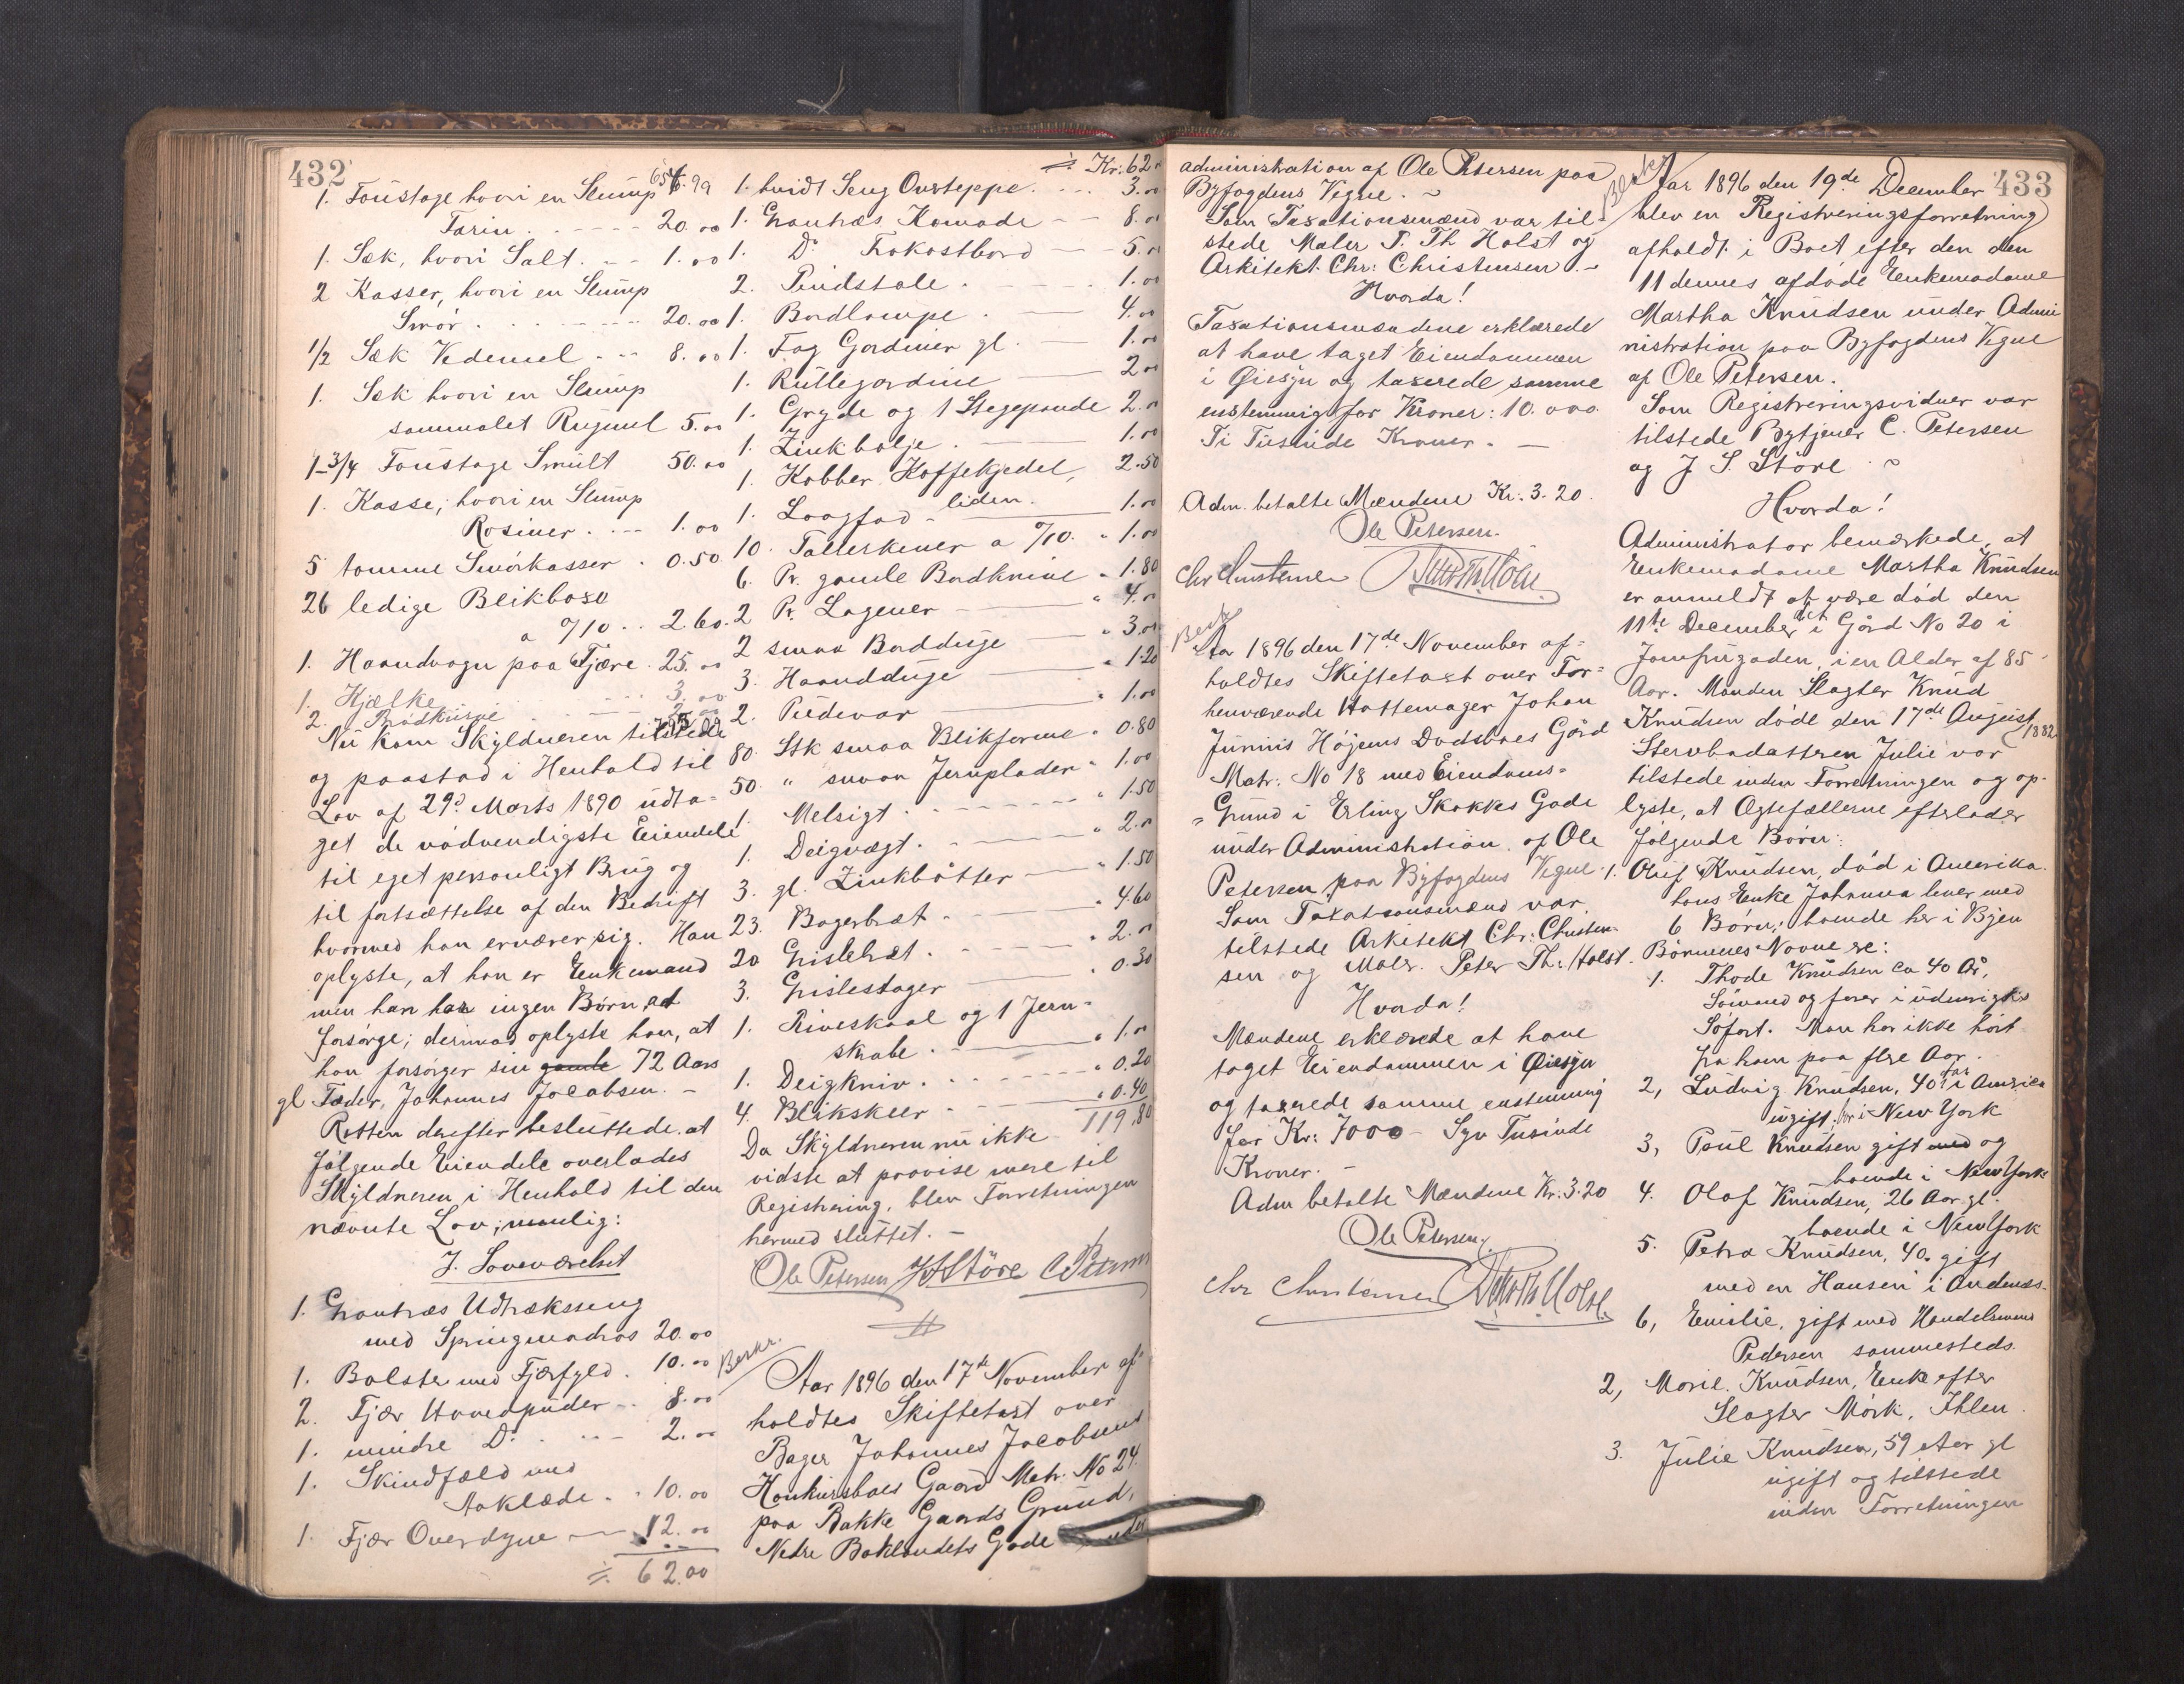 432
654.99
1. Foustage hvori en Slump
Farin . - - - - 20.00
1. Sæk, hvori Salt. - - 1.00
2 Kasser, hvori en Slump
Smør . . - - - - 20.00
1/2 Sæk Vedemel - - - 8.00
1. Sæk hvori en Slump
sammalet Rugmel 5.00
1-3/4 Foustage Smult 50.00
1. Kasse, hvori en Slump
Rosiner. - - - 1.00
5 tomme Smørkasser . 0.50
26 ledige Blikbøse
a 0/10 . . 2.60
1. Haandvogn paa Fjære . 25.00
1. Kjælke - - - 3.00
2. Brødkurve - - -
Nu kom Skyldneren tilstede
og paastod i Henhold til
Lov af 29de Marts 1890 udta-
get de nødvendigste Eiendele
til eget personligt Brug og
til fortsættelse af den Bedrift
hvormed han ernærer sig. Han
oplyste, at han er Enkemand
men han har ingen Børn at
forsørge; derimod oplyste han, at
han forsørger sin gamle 72 Aars
gl Fader, Johannes Jacobsen. -
Retten derefter besluttede at
følgende Eiendele overlades
Skyldneren i Henhold til den
nævnte Lov, nemlig:
I. Soveværelset
1. Grantræs Udtræksseng
med Springmadras 20.00
1. Bolster med Fjærfyld . 10.00
2. Fjær Hovedpuder - . 8.00
1. mindre Do . . - - 2.00
1. Skindfæld med
Aaklæde - . 10.00
1. Fjær Overdyne - 12.00
÷ 62.00
÷ Kr. 62.00
1. hvidt Seng Overteppe . - - 3.00
1. Grantræs Komode - - 8.00
1. Do Frokostbord - - 5.00
2. Pindstole . - - - 1.00
1. Bordlampe . - 4.00
1. Fag Gardiner gl - 1.00
1. Rullegardine - 2.00
1. Gryde og 1 Stegepande 2.00
1. Zinkbalje . - 1.00
1. Kobber Kaffekjedel, 2.50
liden.
1. Laagfad - - 1.00
10. Tallerkener a 0/10. " 1.00
6. Pr. gamle Bordknive " 1.80
2 Pr. Lagener - " 4.00
2 smaa Bordduge - " 3.00
3. Haandduge - " 1.20
2. Pudevar - " 1.00
80. Stk smaa Blikforme " 0.80
50. " smaa Jernplader " 1.00
1. Melsigt . - - - - " 1.50
1. Deigvægt. - - " 2.00
3. gl. Zinkbøtter - " 1.50
23. Bagerbræt - - " 4.60
20 Grislebræt . - " 2.00
3. Grislestager - " 0.30
1. Riveskaal og 1 Jern-
skrabe . - " 1.00
1. Deigkniv . - - - " 0.20
4. Blikskeer - - " 0.40
119.80
Da Skyldneren nu ikke
vidste at paavise mere til
Registrering, blev Forretningen
hermed sluttet. -
Ole Petersen J S Störe C Petersen
Beskr.
Aar 1896 den 17de November af-
holdtes Skiftetaxt over
Bager Johannes Jacobsens
Konkursboes Gaard Matr. No 24.
paa Bakke Gaards Grund,
Nedre Baklandets Gade under
administration af Ole Petersen paa
Byfogdens Vegne. ~
Som Taxationsmænd var til-
stede Maler P. Th Holst og
Arkitekt Chr: Christensen. -
Hvorda!
Taxationsmændene erklærede
at have taget Eiendommen
i Øiesyn og taxerede samme
enstemmig for Kroner: 10.000.
Ti Tusinde Kroner. -
Adm. betalte Mændene Kr. 3.20.
Ole Petersen.
Chr Christensen Peter Th. Holst.
Beskr
Aar 1896 den 17de November af-
holdtes Skiftetaxt over For-
henværende Hattemager Johan
Junius Højems Dødsboes Gård
Matr. No 18 med Eiendoms-
Grund i Erling Skakkes Gade
under Administration af Ole
Petersen paa Byfogdens Vegne.
Som Taxationsmænd var
tilstede Arkitekt Chr: Christen-
sen og Maler. Peter Th. Holst.
Hvorda!
Mændene erklærede at have
taget Eiendommen i Øiesyn
og taxerede samme enstemmig
for Kr: 7000 - Syv Tusinde
Kroner. -
Adm betalte Mændene Kr. 3.20
Ole Petersen
Chr Christensen Peter Th. Holst.
433
Beskr
Aar 1896 den 19de December
blev en Registreringsforretning
afholdt i Boet efter den den
11 dennes afdøde Enkemadame
Martha Knudsen under Admi
nistration paa Byfogdens Vegne
af Ole Petersen.
Som Registreringsvidner var
tilstede Bytjener C. Petersen
og J S. Störe ~
Hvorda!
Administrator bemærkede, at
Enkemadame Martha Knudsen
er anmeldt at være død den
11te December i Gård No 20 i
Jomfrugaden, i en Alder af 85
Aar. Manden Slagter Knud
Knudsen døde den 17de August 1882.
Stervbodatteren Julie var
tilstede under Forretningen og op-
lyste, at Ægtefællerne efterlader
følgende Børn:
1. Oluf Knudsen, død i Amerika.
hans Enke Johanna lever med
6 Børn, boende her i Byen
Børnenes Navne ere:
1. Thode Knudsen ca 40 År,
Sømand og farer i udenrigsk
Søfart. Man har ikke hørt
fra ham paa flere Aar.
2, Ludvig Knudsen, 40 år i America
ugift. i New York
3, Poul Knudsen gift med og
boende i New York
4. Olaf Knudsen, 26 Aar gl.
boende i New York
5. Petra Knudsen, 40. gift
med en Hansen i Åndenæs.
6, Emilie, gift med Handelsmand
Pedersen sammesteds.
2, Marie Knudsen, Enke efter
Slagter Mørk, Ihlen.
3. Julie Knudsen, 59 Aar gl
ugift og tilstede
under Forretningen